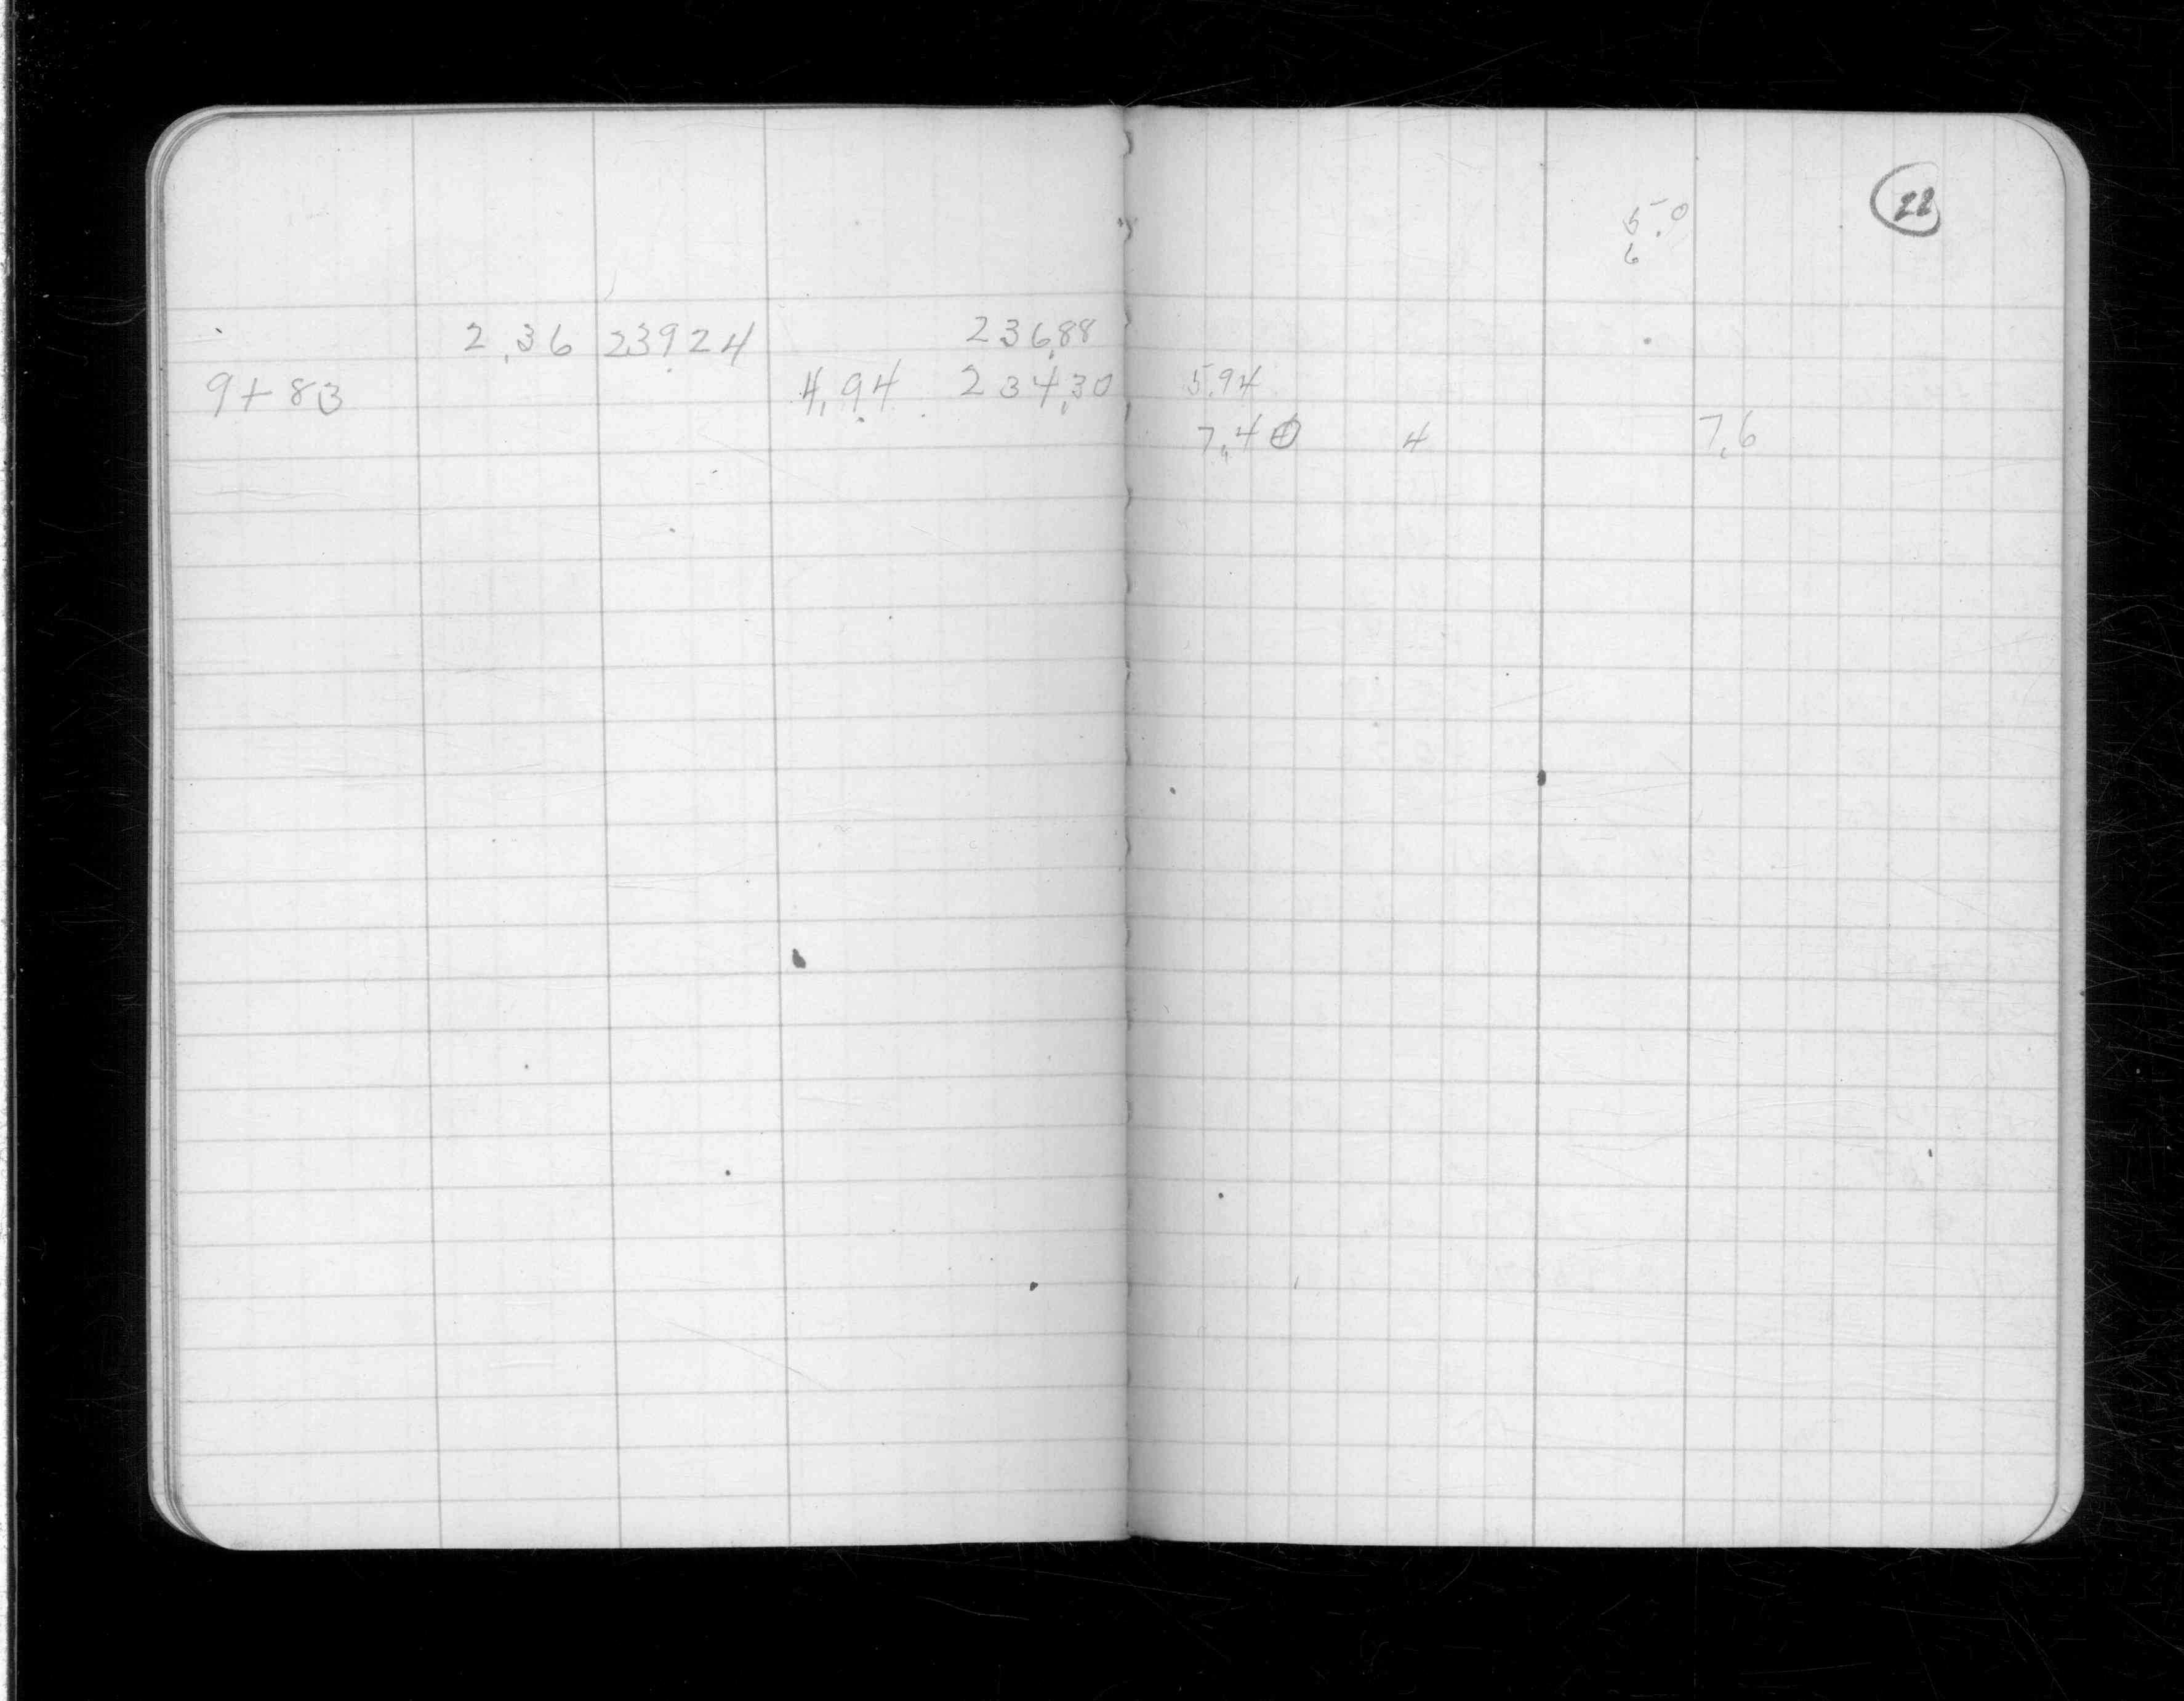 2.36 239.24 236.88
9+83 4.94 234.30
22
5.0
6
5.94
7.40 4 7.6